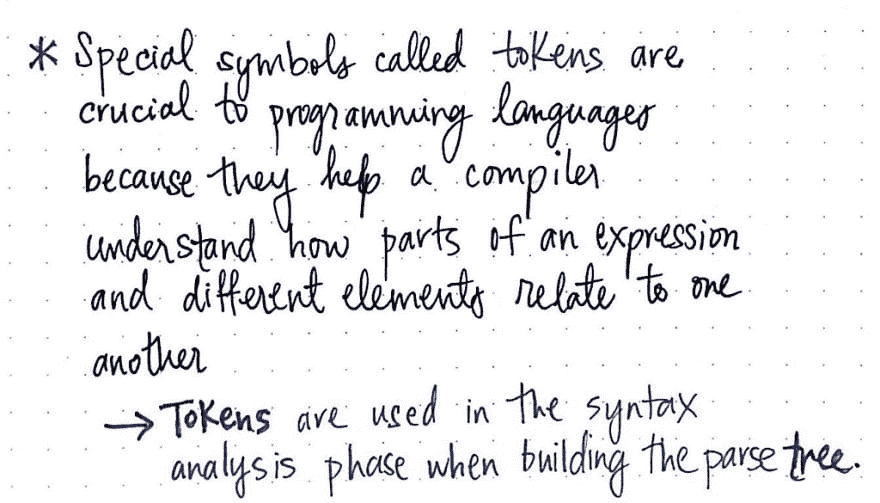 * Special symbols called tokens are
crucial to programming languages
because they help a compiler
understand how parts of an expression
and different elements relate to one
another
→ Tokens are used in the syntax
analysis phase when building the parse tree.